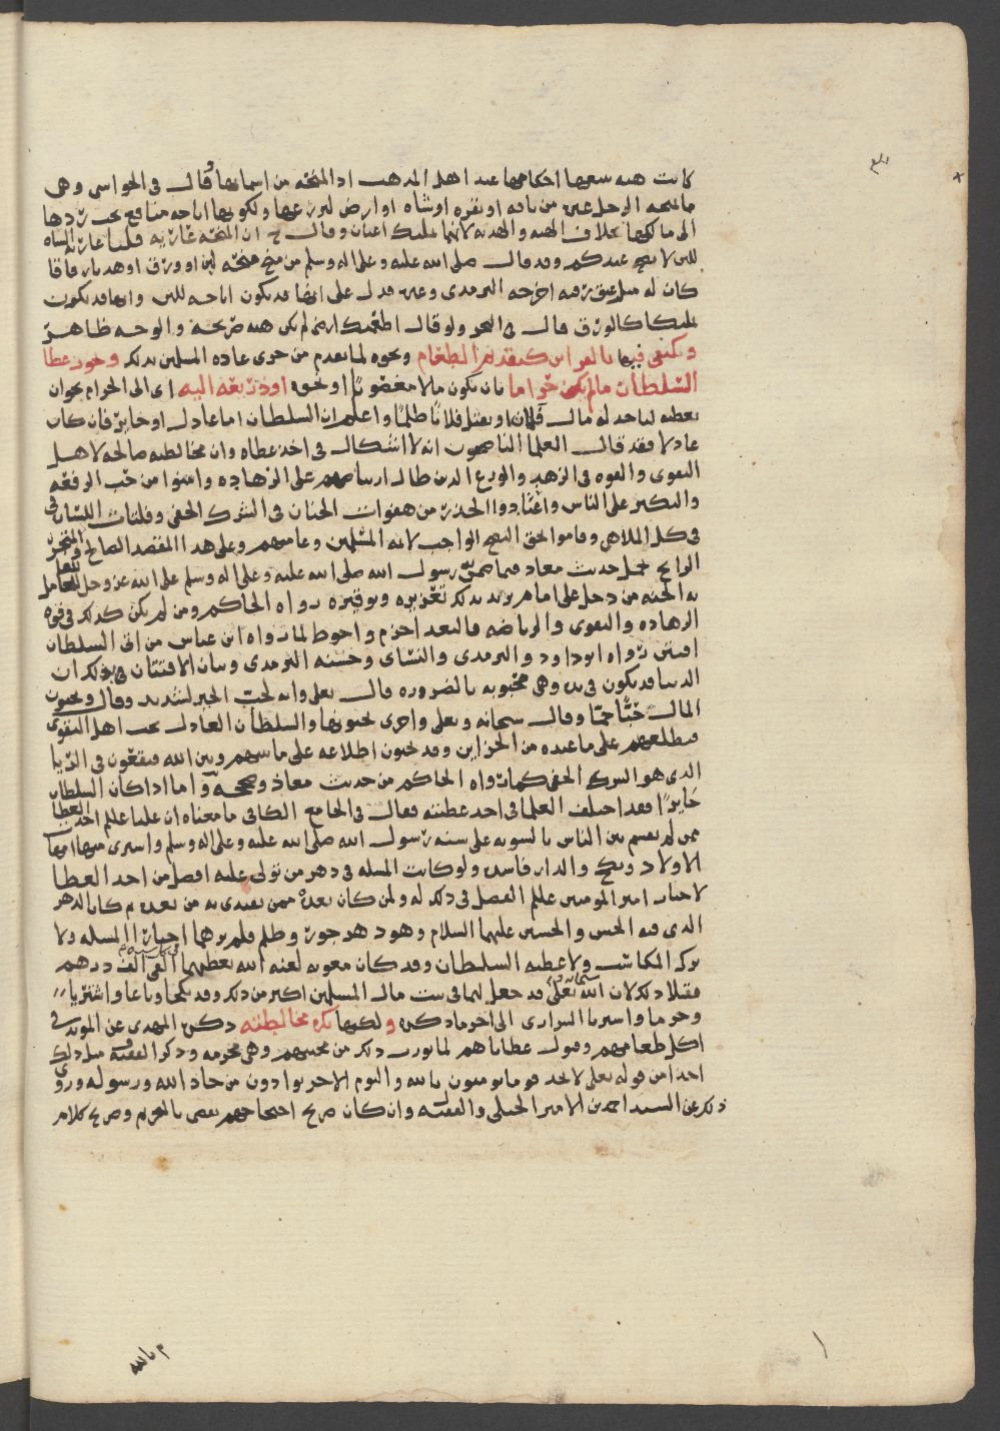 كانت هبه سعها احكامها عند اهل المذهب اذ المنحه من اسمائها وقال في الحواشي وهي
ما يمنحه الرجل غيره من ناقه او بقره او شاه او ارض لزرعها ولكونها اباحه منافع يجب ردها
الى مالكها بخلاف الهبه والهديه لانهما تمليك اعيان وقال ح ان المنحه عاريه قلنا عاريه الشاه
للبن لا تصح عندكم وقد قال صلى الله عليه وعلى اله وسلم من منح منحه لبن او ورق او هدا زقاقا
كان له مثل عتق رقبه اخرجه الترمدي وغيره فدل على انها قد يكون اباحه للبن وانها قد يكون
تمليكا كالورق قال في البحر ولو قال اطعمتك ارضي لم يكن هبه صريحه والوجه ظاهر
ويكفي فيها بالقرائن كتقديم الطعام ونحوه لما تقدم من جرى عاده المسلمين بذلك وجوز عطا
السلطان مالم يكن حراما بان يكون مالا مغصوبًا او نحوه او ذريعه اليه اي الى الحرام نحوان
يعطيه لياخذ له مال فلان او يقتل فلانًا ظلمًا واعلم ان السلطان اما عادل او جاير فان كان
عادلا فقد قال العلما الناصحون انه لا اشكال في اخذ عطاه وان مخالطته صالحه لاهل
التقوى والقوه في الزهد والورع الذين طال ارتياضهم على الزهاده وامنوا من حب الرفعه
والتكبر على الناس واعتادوا الحذر من هفوات الجنان في الشرك الخفي وفلتات اللسان في
في كل الملاهي وقاموا بحق النصح الواجب لائمه المسلمين وعامتهم وعلى هذا المقصد الصالح والمتجر
الرابح يحمل حديث معاذ فيما ضمن به رسول الله صلى الله عليه وعلى اله وسلم على الله عز وجل للعامل
به الجنه من دخل على امامه يريد بذلك تعزيره وتوقيره رواه الحاكم ومن لم يكن كذلك في قوه
الزهاده والتقوى والرياضه فالبعد احزم واحوط لما رواه ابن عباس من اتى السلطان
افتتن رواه ابو داود والترمدي والنساي وحسنه الترمدي وبيان الافتتان في ذلك ان
الدنيا قد يكون في يده وهي محبوبه بالضروره قال تعلى وانه لحب الخير لشديد وقال ويحبون
المال حبًّا جمًّا وقال سبحانه وتعلى واخرى تحبونها والسلطان العادل يحب اهل التقوى
فيطلعهم على ما عنده من الخزاين وقد يحبون اطلاعه على ما بينهم وبين الله فيقعون في الريا
الذي هو الشرك الخفي كما رواه الحاكم من حديث معاذ وصححه واما اذا كان السلطان
جايرًا فقد اختلف العلما في اخذ عطيته فقال في الجامع الكافي ما معناه ان عليا عللم اخذ العطا
ممن لم يقسم بين الناس بالسويه على سنه رسول الله صلى الله عليه وعلى اله وسلم واشترى منها امهات
الاولاد ونكح والدار فاسده ولو كانت المسله في دهر من تولى عليه افضل من اخذ العطا
لاختاره امير المومنين عللم الفضل في ذلك له ولمن كان بعده ممن يقتدي به من بعده ثم كان الدهر
الذي فيه الحسن والحسين عليهما السلام وهو دهر جور وظلم فلم يرهما اجتازا المسله ولا
ترك المكاسب ولا عطيه السلطان وقد كان معويه لعنه الله يعطيهما الفي الف درهم
فقبلا ذلك لان الله تعلى قد جعل لهما في بيت مال المسلمين اكثر من ذلك وقد نكحا وباعا واشتريا
وحرما واشتريا السراري الى اخر ما ذكره ولكنها تكره مخالطته ذكره المهدي عن المويد في
اكل طعامهم وقبول عطاياهم لما يورث ذلك من محبتهم وهي محرمه وذكر الفقيه مثل ذلك
اخذا من قوله تعلى لا تجد قوما يومنون بالله واليوم الاخر يوادون من حاد الله ورسوله وروي
ذلك عن السيد احمد بن الامير الجيلي والفقيه وان كان صريح احتجاجهم يقضي بالتحريم وصريح كلام
م بالله